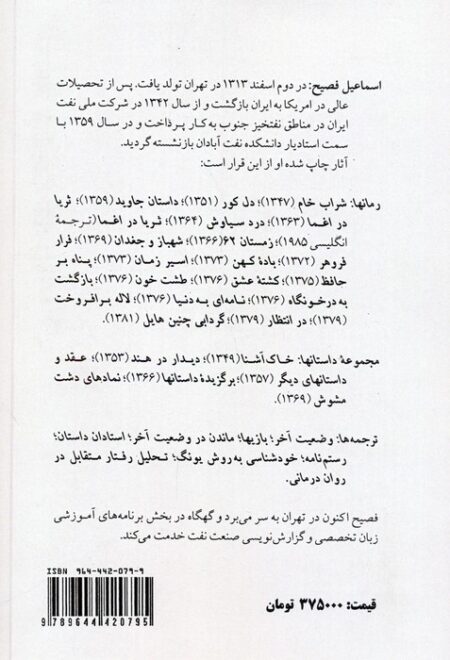 اسماعیل فصیح: در دوم اسفند ۱۳۱۳ در تهران تولد یافت. پس از تحصیلات
عالی در امریکا به ایران بازگشت و از سال ۱۳۴۲ در شرکت ملی نفت
ایران در مناطق نفتخیز جنوب به‌کار پرداخت و در سال ۱۳۵۹ با
سمت استادیار دانشکده نفت آبادان بازنشسته گردید.
آثار چاپ شده او از این قرار است:
رمانها: شراب خام (۱۳۴۷)؛ دل کور (۱۳۵۱)؛ داستان جاوید (۱۳۵۹)؛ ثریا
در اغما (۱۳۶۳)؛ درد سیاوش (۱۳۶۴)؛ ثریا در اغما (ترجمهٔ
انگلیسی ۱۹۸۵)؛ زمستان ۶۲ (۱۳۶۶)؛ شهباز و جغدان (۱۳۶۹)؛ فرار
فروهر (۱۳۷۲)؛ بادهٔ کهن (۱۳۷۳)؛ اسیر زمان (۱۳۷۳)؛ پناه بر
حافظ (۱۳۷۵)؛ کشتهٔ عشق (۱۳۷۶)؛ طشت خون (۱۳۷۶)؛ بازگشت
به درخونگاه (۱۳۷۶)؛ نامه‌ای به دنیا (۱۳۷۶)؛ لاله برافروخت
(۱۳۷۹)؛ در انتظار (۱۳۷۹)؛ گردابی چنین هایل (۱۳۸۱).
مجموعهٔ داستانها: خاک آشنا (۱۳۴۹)؛ دیدار در هند (۱۳۵۳)؛ عقد و
داستانهای دیگر (۱۳۵۷)؛ برگزیدهٔ داستانها (۱۳۶۶)؛ نمادهای دشت
مشوش (۱۳۶۹).
ترجمه‌ها: وضعیت آخر؛ بازیها؛ ماندن در وضعیت آخر؛ استادان داستان؛
رستم‌نامه؛ خودشناسی به‌روش یونگ؛ تحلیل رفتار متقابل در
روان درمانی.
فصیح اکنون در تهران به سر می‌برد و گهگاه در بخش برنامه‌های آموزشی
زبان تخصصی و گزارش‌نویسی صنعت نفت خدمت می‌کند.
ISBN 964-442-079-9
9 789644 420795
قیمت: ۳۷۵۰۰۰ تومان